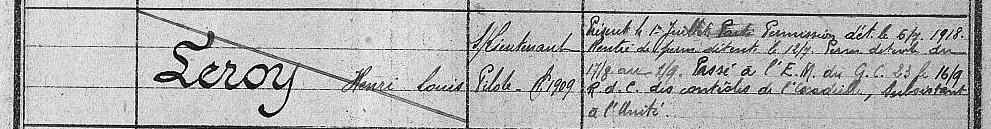 Leroy Henri Louis
S/Lieutenant
Pilote
Présent le 1er Juillet Parti Permission dét. le 6/7. 1918.
Rentré de perm détente le 18/7. Perm détente du
17/8 au 1/9. Passé à l'E.M. du G.C. 23 le 16/9
R d. C. des contrôles de l'Escadrille, Subsistant
à l'Unité.